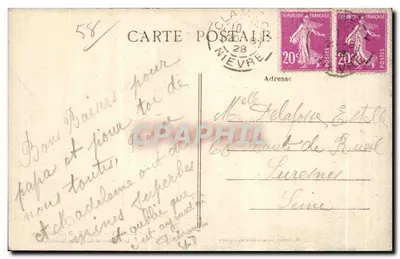 58
CARTE POSTALE
CLAMECY
28
NIEVRE
REPUBLIQUE FRANÇAISE
20c
POSTES
REPUBLIQUE FRANÇAISE
20c
POSTES
Adresse
Bons Baisers pour
papa et pour toi de
nous toutes,
et Madeleine ont de
mines superbes
et oublie que
c'est aujourd'hui
Melle Delafosse Estelle
Route de Rueil
Suresnes
Seine
CPAPHIL